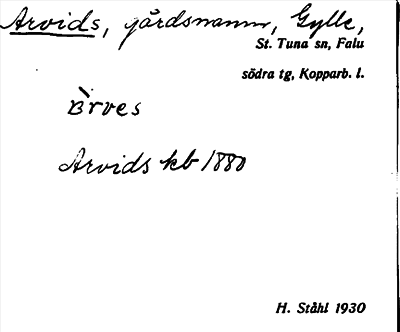 Arvids, gårdsnamn, Gylle,
St. Tuna sn, Falu
södra tg, Kopparb. l.
àrves
Arvids kb 1880
H. Ståhl 1930